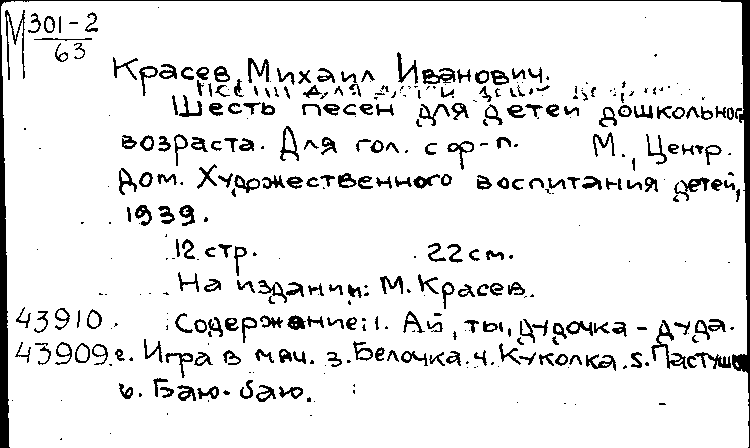 М 301-2
63
Красев, Михаил Иванович.
Шесть песен для детей дошкольного
возраста. Для гол. с ф-п. М., Центр.
дом. Художественного воспитания детей,
1939.
12 стр. 22 см.
На издании: М. Красев.
43910. Содержание: 1. Ай, ты, дудочка-дуда.
43909 2. Игра в мяч. 3. Белочка. 4. Куколка. 5. Пастушок
6. Баю-баю.